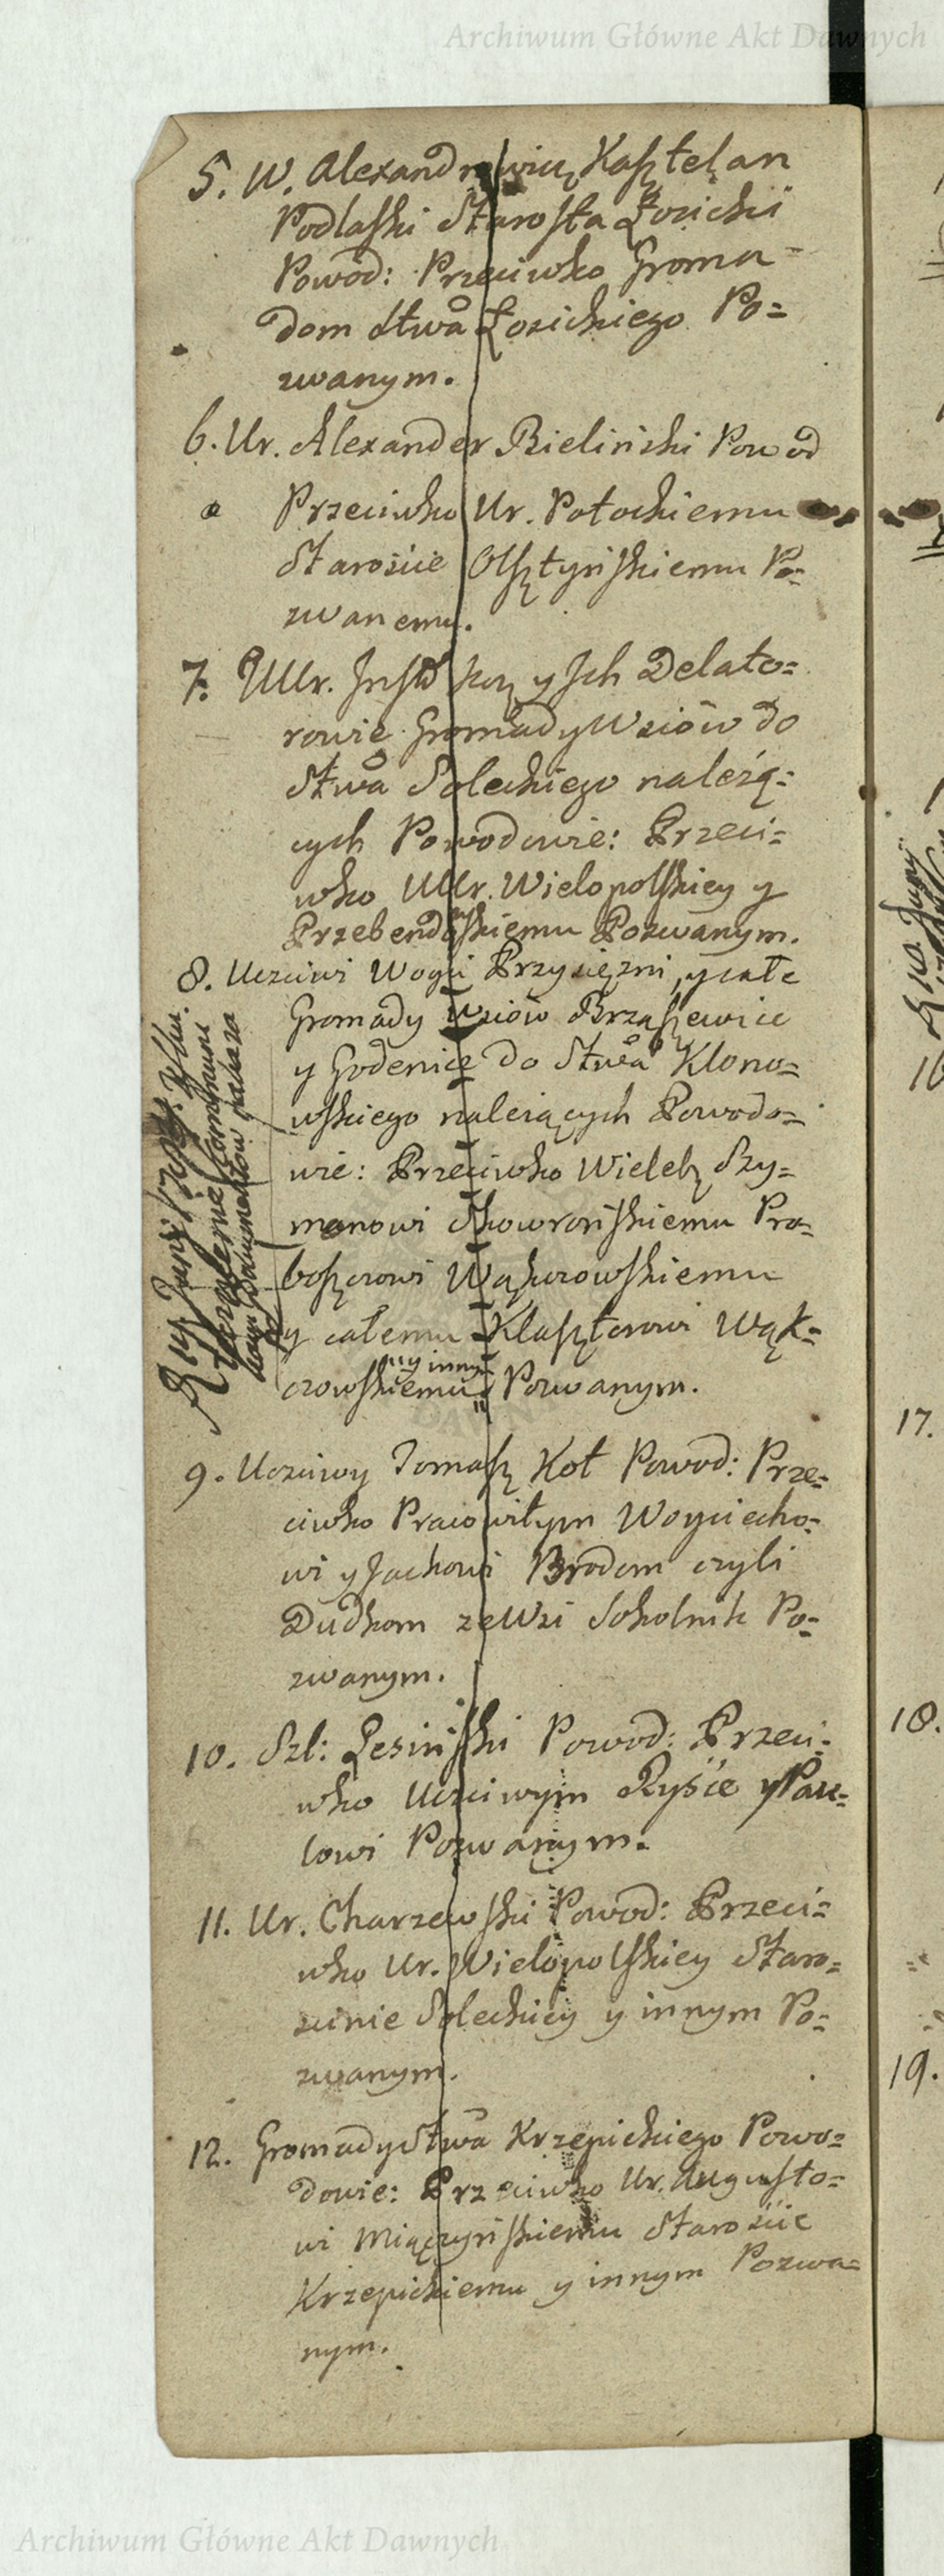 Archiwum Główne Akt Dawnych
5. W. Alexandrowicz Kasztelan
Podlaski Starosta Łosicki
Powod: Przeciwko Groma-
dom Stwa Łosickiego Po=
zwanym.
6. Ur. Alexander Bieliński Powod
Przeciwko Ur. Potockiemu
Starośìe Olsztyńskiemu Po=
zwanemu.
7. UUr. y Ich Delato=
rowie Gromady Wsiów do
Stwa Soleckiego należą=
cych Powodowie: Przeci=
wko UUr. Wielopolskiey y
Przebendoskiemu Pozwanym.
8. Uczciwi Woyci Przysięzni, y całe
Gromady Wsiów Brząszewice
y Godenice do Stwa Klono=
wskiego należących Powodo=
wie: Przeciwko Wieleb Szy=
manowi Skowrońskiemu Pro=
boszczowi Wąhcrowskiemu
y całemu Klasztorowi Wąk=
czowskiemu y innym Pozwanym.
9. Uczciwy Tomasz Kot Powod: Prze=
ciwko Pracowitym Woyciecho=
wi y Jachowi Brodom czyli
Dudkom ze Wsi Sokolnik Po=
zwanym.
10. Szl: Lesiński Powod: Przeci=
wko Uczciwym Rysie y Paw=
lowi Pozwanym.
11. Ur. Charzewski Powod: Przeci=
wko Ur. Wielopolskiey Staro=
scinie Soleckiey y innym Po=
zwanym.
12. Gromady Stwa Krzepickiego Powo=
dowie: Przeciwko Ur. Augusto=
wi Miączyńskiemu Starośìe
Krzepickiemu y innym Pozwa=
nym.
16
17.
18.
19.
Archiwum Główne Akt Dawnych